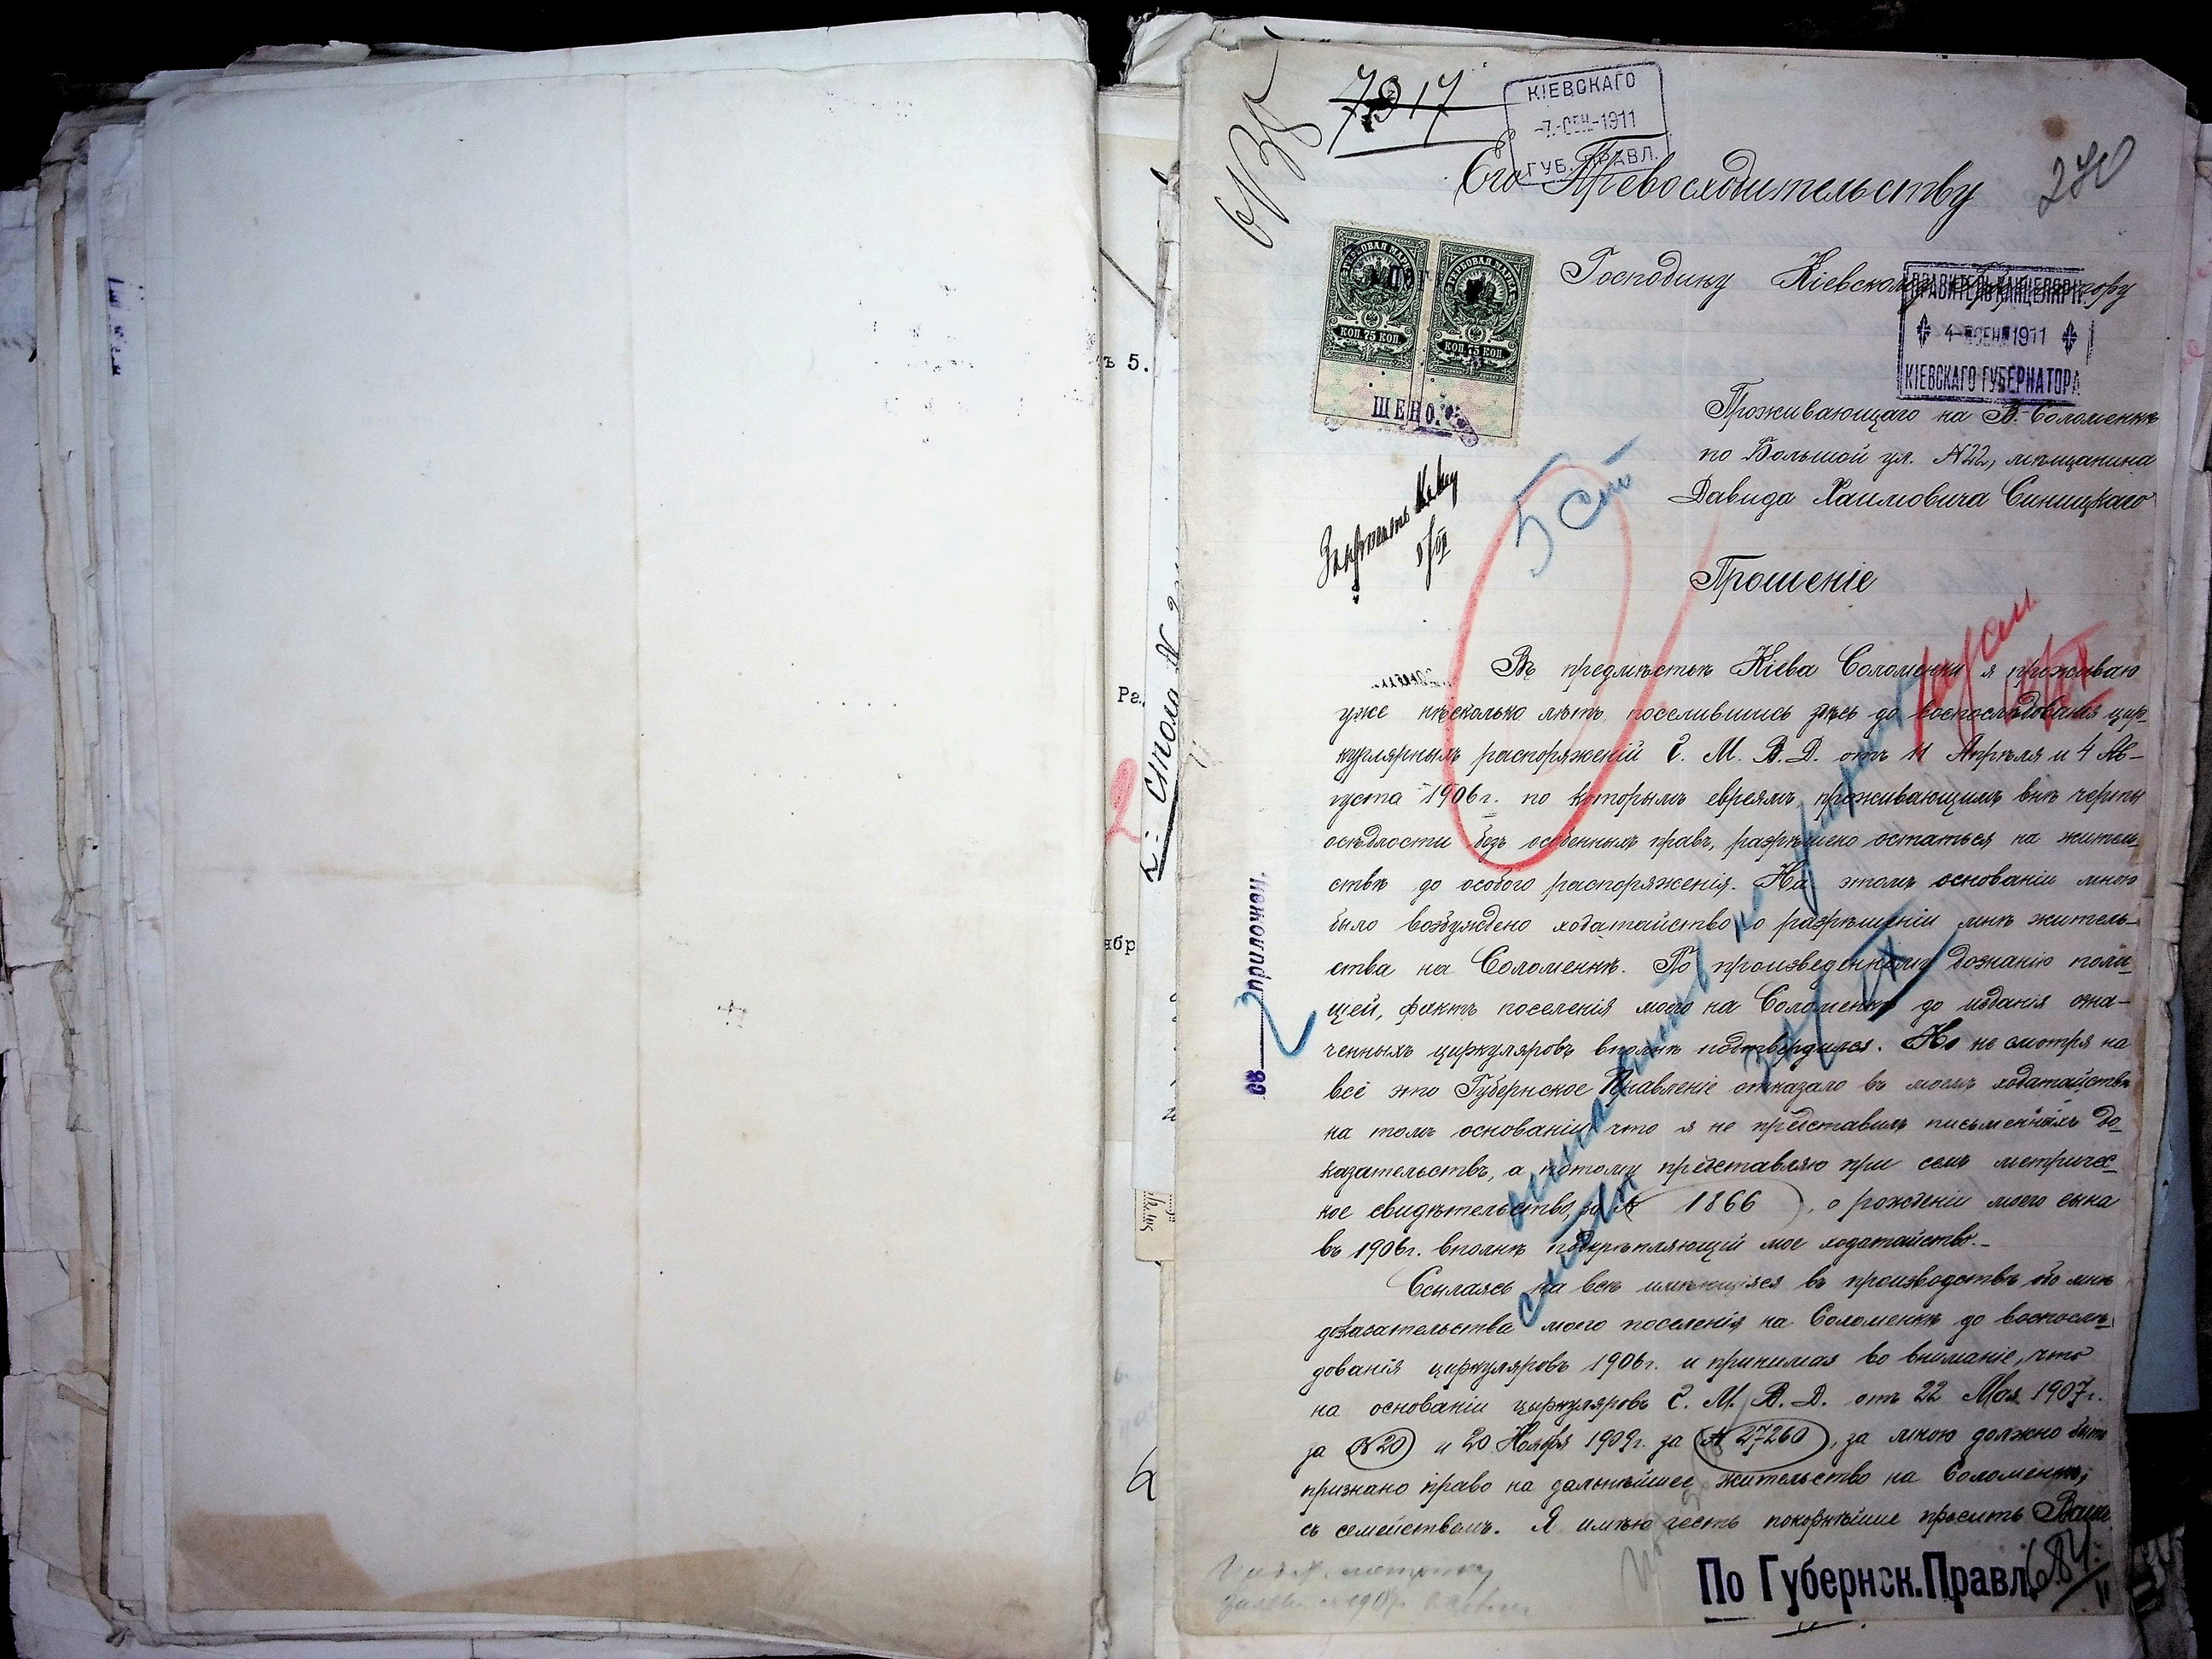 7917
КІЕВСКАГО
-7.-СЕН.-1911
ГУБ. ПРАВЛ.
270
Его Превосходительству
Господину Кіевскому Губернатору
ПРАВИТЕЛЬ КАНЦЕЛЯРІИ
4- СЕН 1911
КІЕВСКАГО ГУБЕРНАТОРА
ГЕРБОВАЯ МАРКА
ГЕРБОВАЯ МАРКА
КОП. 75 КОП.
КОП. 75 КОП.
ПОГ
ШЕНО.
Проживающаго на В. Соломенкѣ
по Большой ул. №22, мѣщанина
Давида Хаимовича Синицкаго
5 ст
Прошеніе
Въ предмѣстьѣ Кіева Соломенки я проживаю
уже нѣсколько лѣтъ, поселившись здѣсь до воспослѣдованія цир-
кулярныхъ распоряженій Г. М. В. Д. отъ 11 Апрѣля и 4 Ав-
густа 1906г. по которымъ евреямъ, проживающимъ внѣ черты
осѣдлости безъ особенныхъ правъ, разрѣшено остаться на житель-
ствѣ до особого распоряженія. На этомъ основаніи мною
было возбуждено ходатайство о разрѣшеніи мнѣ житель-
ства на Соломенкѣ. По произведенному дознанію поли-
цей, фактъ поселенія моего на Соломенкѣ до изданія озна-
ченныхъ циркуляровъ вполнѣ подтвердился. Но не смотря на
всё это Губернское Правленіе отказало въ моемъ ходатайствѣ
на томъ основаніи что я не представилъ письменныхъ до-
казательствъ, а потому представляю при семъ метричес-
кое свидѣтельство, за № 1866, о рожденіи моего сына
въ 1906г. вполнѣ подкрѣпляющій мое ходатайство.-
Ссылаясь на всѣ имѣющіяся въ производствѣ обо мнѣ
доказательства моего поселенія на Соломенкѣ до воспослѣ-
дованія циркуляровъ 1906г. и принимая во вниманіе, что
на основаніи циркуляровъ Г. М. В. Д. отъ 22 Мая 1907г.
за №20 и 20 Ноября 1909г. за № 27260, за мною должно быть
признано право на дальнѣйшее жительство на Соломенкѣ,
съ семействомъ. Я имѣю честь покорнѣйше просить Ваше
По Губернск. Правл.
684
II
Съ приложеніи
ъ 5.
Ра.
ябр
стола №